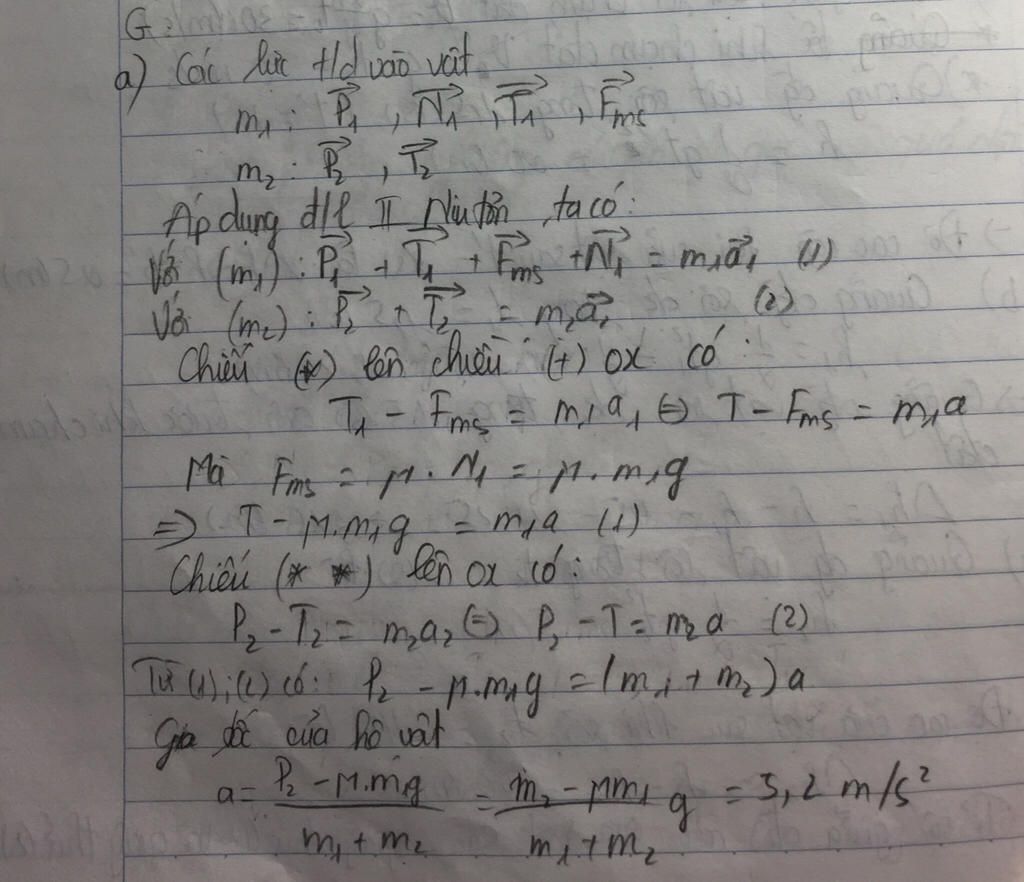 G:
a) Các lực t/d vào vật
m₁: P₁, N₁, T₁, Fms
m₂: P₂, T₂
Áp dụng đ/l II Niu tơn, ta có:
Với (m₁): P₁ + T₁ + Fms + N₁ = m₁a₁ (1)
Với (m₂): P₂ + T₂ = m₂a₂ (2)
Chiếu (*) lên chiều (+) ox có:
T₁ - Fms = m₁a₁ ⇔ T - Fms = m₁a
Mà Fms = μ.N₁ = μ.m₁g
⇒ T - μ.m₁g = m₁a (1)
Chiếu (* *) lên ox có:
P₂ - T₂ = m₂a₂ ⇔ P₂ - T = m₂a (2)
Từ (1); (2) có: P₂ - μ.m₁g = (m₁ + m₂)a
Gia tốc của hệ vật
a = (P₂ - μ.m₁g)/(m₁ + m₂) = (m₂ - μm₁)/(m₁ + m₂) g = 5,2 m/s²